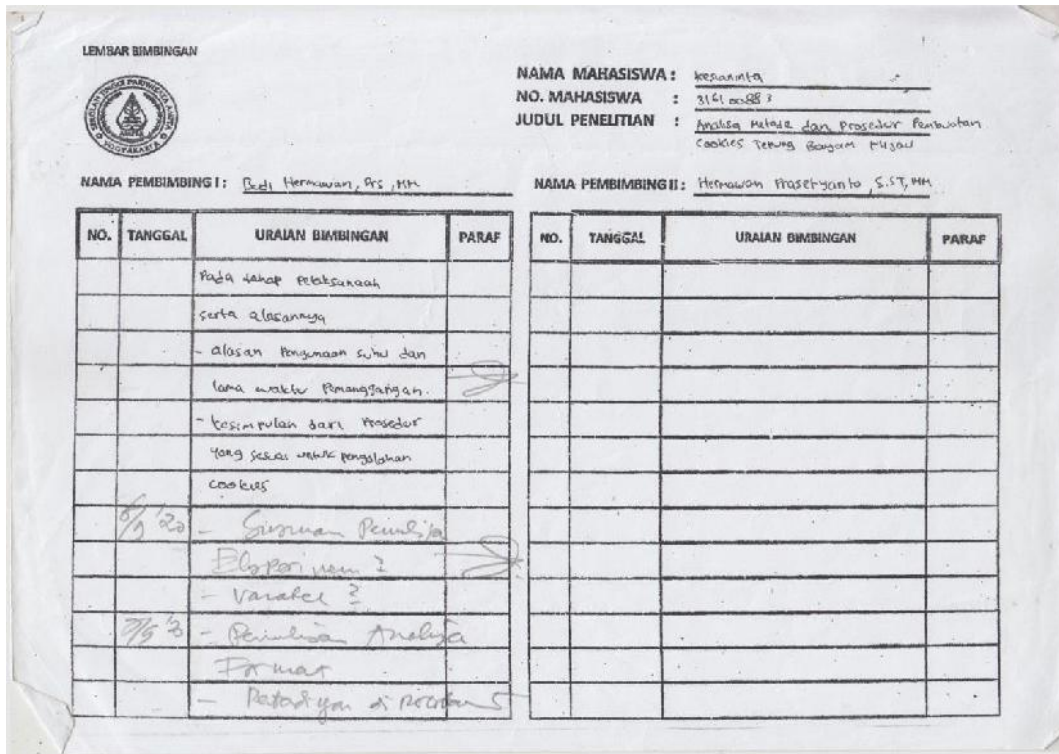 LEMBAR BIMBINGAN
SEKOLAH TINGGI PARIWISATA AMPTA
YOGYAKARTA
NAMA MAHASISWA :
NO. MAHASISWA :
JUDUL PENELITIAN : Analisa Metode dan Prosedur Pembuatan
Cookies Tepung Bayam Hijau
NAMA PEMBIMBING I : Budi Hermawan, Drs, MM
NAMA PEMBIMBING II : Hermawan Prasetyanto, S.ST, MM
NO. TANGGAL URAIAN BIMBINGAN PARAF
Pada tahap pelaksanaan
serta alasannya
- alasan Penggunaan suhu dan
lama waktu Pemanggangan.
- kesimpulan dari Prosedur
yang sesuai untuk pengolahan
cookies
- Susunan
Eksperimen ?
- Variabel ?
- Penulisan Analisa
Format
-
NO. TANGGAL URAIAN BIMBINGAN PARAF